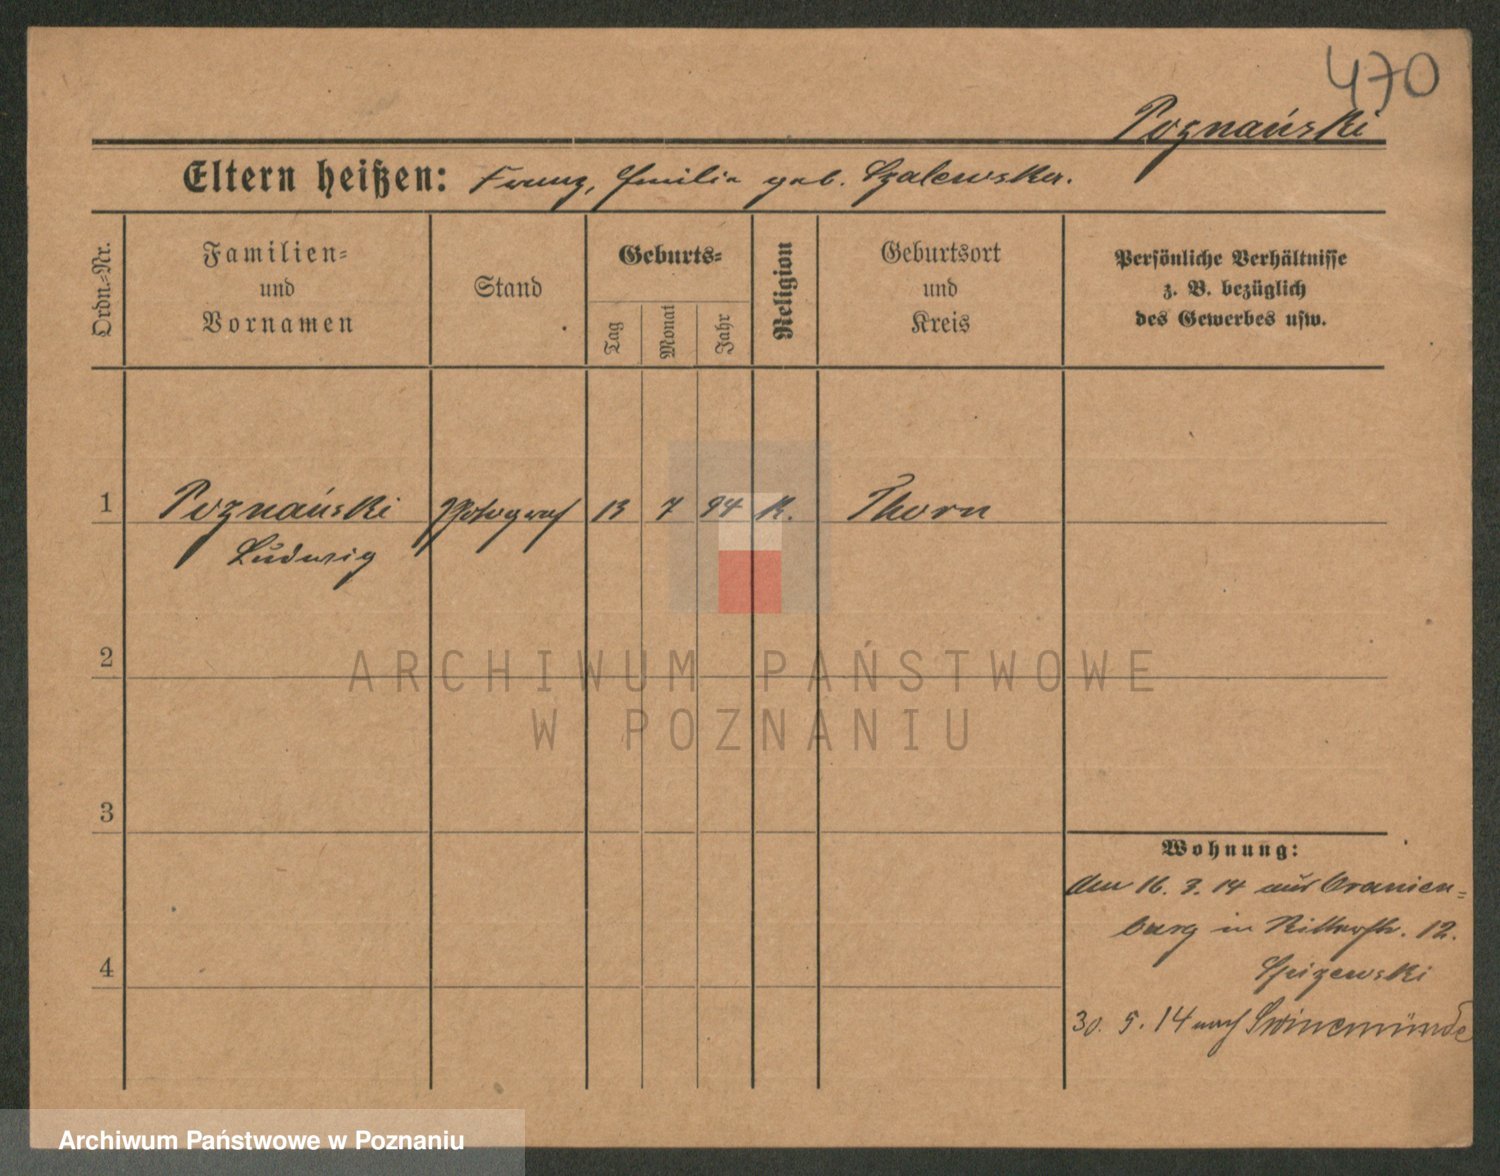 470
Poznański
Eltern heißen: Franz, Emilia geb. Szalewska.
Ordn.-Nr.
Familien-
und
Vornamen
Stand
Geburts-
Tag
Monat
Jahr
Religion
Geburtsort
und
Kreis
Persönliche Verhältnisse
z. B. bezüglich
des Gewerbes usw.
1 Poznański Photograf 13 7 94 K. Thorn
Ludwig
2
3
4
Wohnung:
den 16. 3. 14 aus Oranien-
burg in Ritterstr. 12.
30. 5. 14 nach Swinemünde
ARCHIWUM PAŃSTWOWE
W POZNANIU
Archiwum Państwowe w Poznaniu